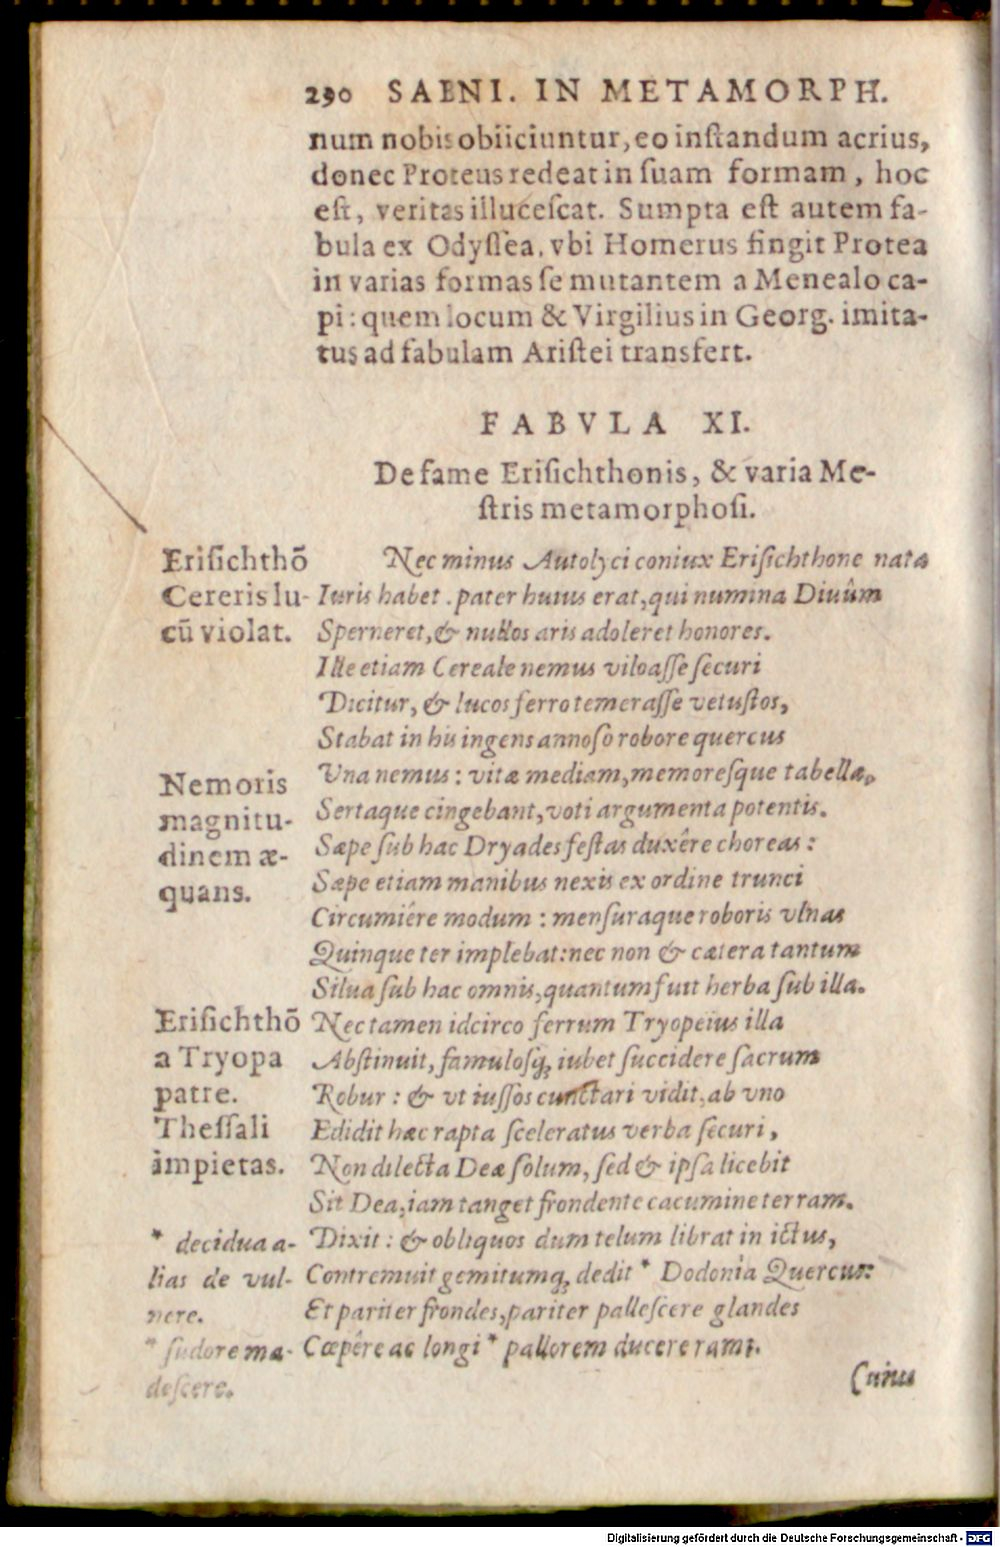 290 SABNI. IN METAMORPH.
num nobis obiiciuntur, eo inſtandum acrius,
donec Proteus redeat in ſuam formam, hoc
eſt, veritas illuceſcat. Sumpta eſt autem fa-
bula ex Odyſſea, vbi Homerus fingit Protea
in varias formas ſe mutantem a Menealo ca-
pi: quem locum & Virgilius in Georg. imita-
tus ad fabulam Ariſtei transfert.
FABVLA XI.
De fame Eriſichthonis, & varia Me-
ſtris metamorphoſi.
Eriſichthõ
Cereris lu-
cũ violat.
Nec minus Autolyci coniux Eriſichthone nata
Iuris habet. pater huius erat, qui numina Diuûm
Sperneret, & nullos aris adoleret honores.
Ille etiam Cereale nemus viloaſſe ſecuri
Dicitur, & lucos ferro temeraſſe vetuſtos,
Stabat in his ingens annoſo robore quercus
Nemoris
magnitu-
dinem æ-
quans.
Vna nemus: vitæ mediam, memoreſque tabellæ,
Sertaque cingebant, voti argumenta potentis.
Sæpe ſub hac Dryades feſtas duxêre choreas:
Sæpe etiam manibus nexis ex ordine trunci
Circumiêre modum: menſuraque roboris vlnas
Quinque ter implebat: nec non & cætera tantum
Silua ſub hac omnis, quantum fuit herba ſub illa.
Eriſichthõ
a Tryopa
patre.
Theſſali
impietas.
Nec tamen idcirco ferrum Tryopeius illa
Abſtinuit, famuloſq; iubet ſuccidere ſacrum
Robur: & vt iuſſos cunctari vidit, ab vno
Edidit hæc rapta ſceleratus verba ſecuri,
Non dilecta Deæ ſolum, ſed & ipſa licebit
Sit Dea, iam tanget frondente cacumine terram.
* decidua a-
lias de vul-
nere.
* ſudore ma-
deſcere.
Dixit: & obliquos dum telum librat in ictus,
Contremuit gemitumq; dedit * Dodonia Quercus:
Et pariter frondes, pariter palleſcere glandes
Cœpêre ac longi * pallorem ducere rami.
Cuius
Digitalisierung gefördert durch die Deutsche Forschungsgemeinschaft - DFG